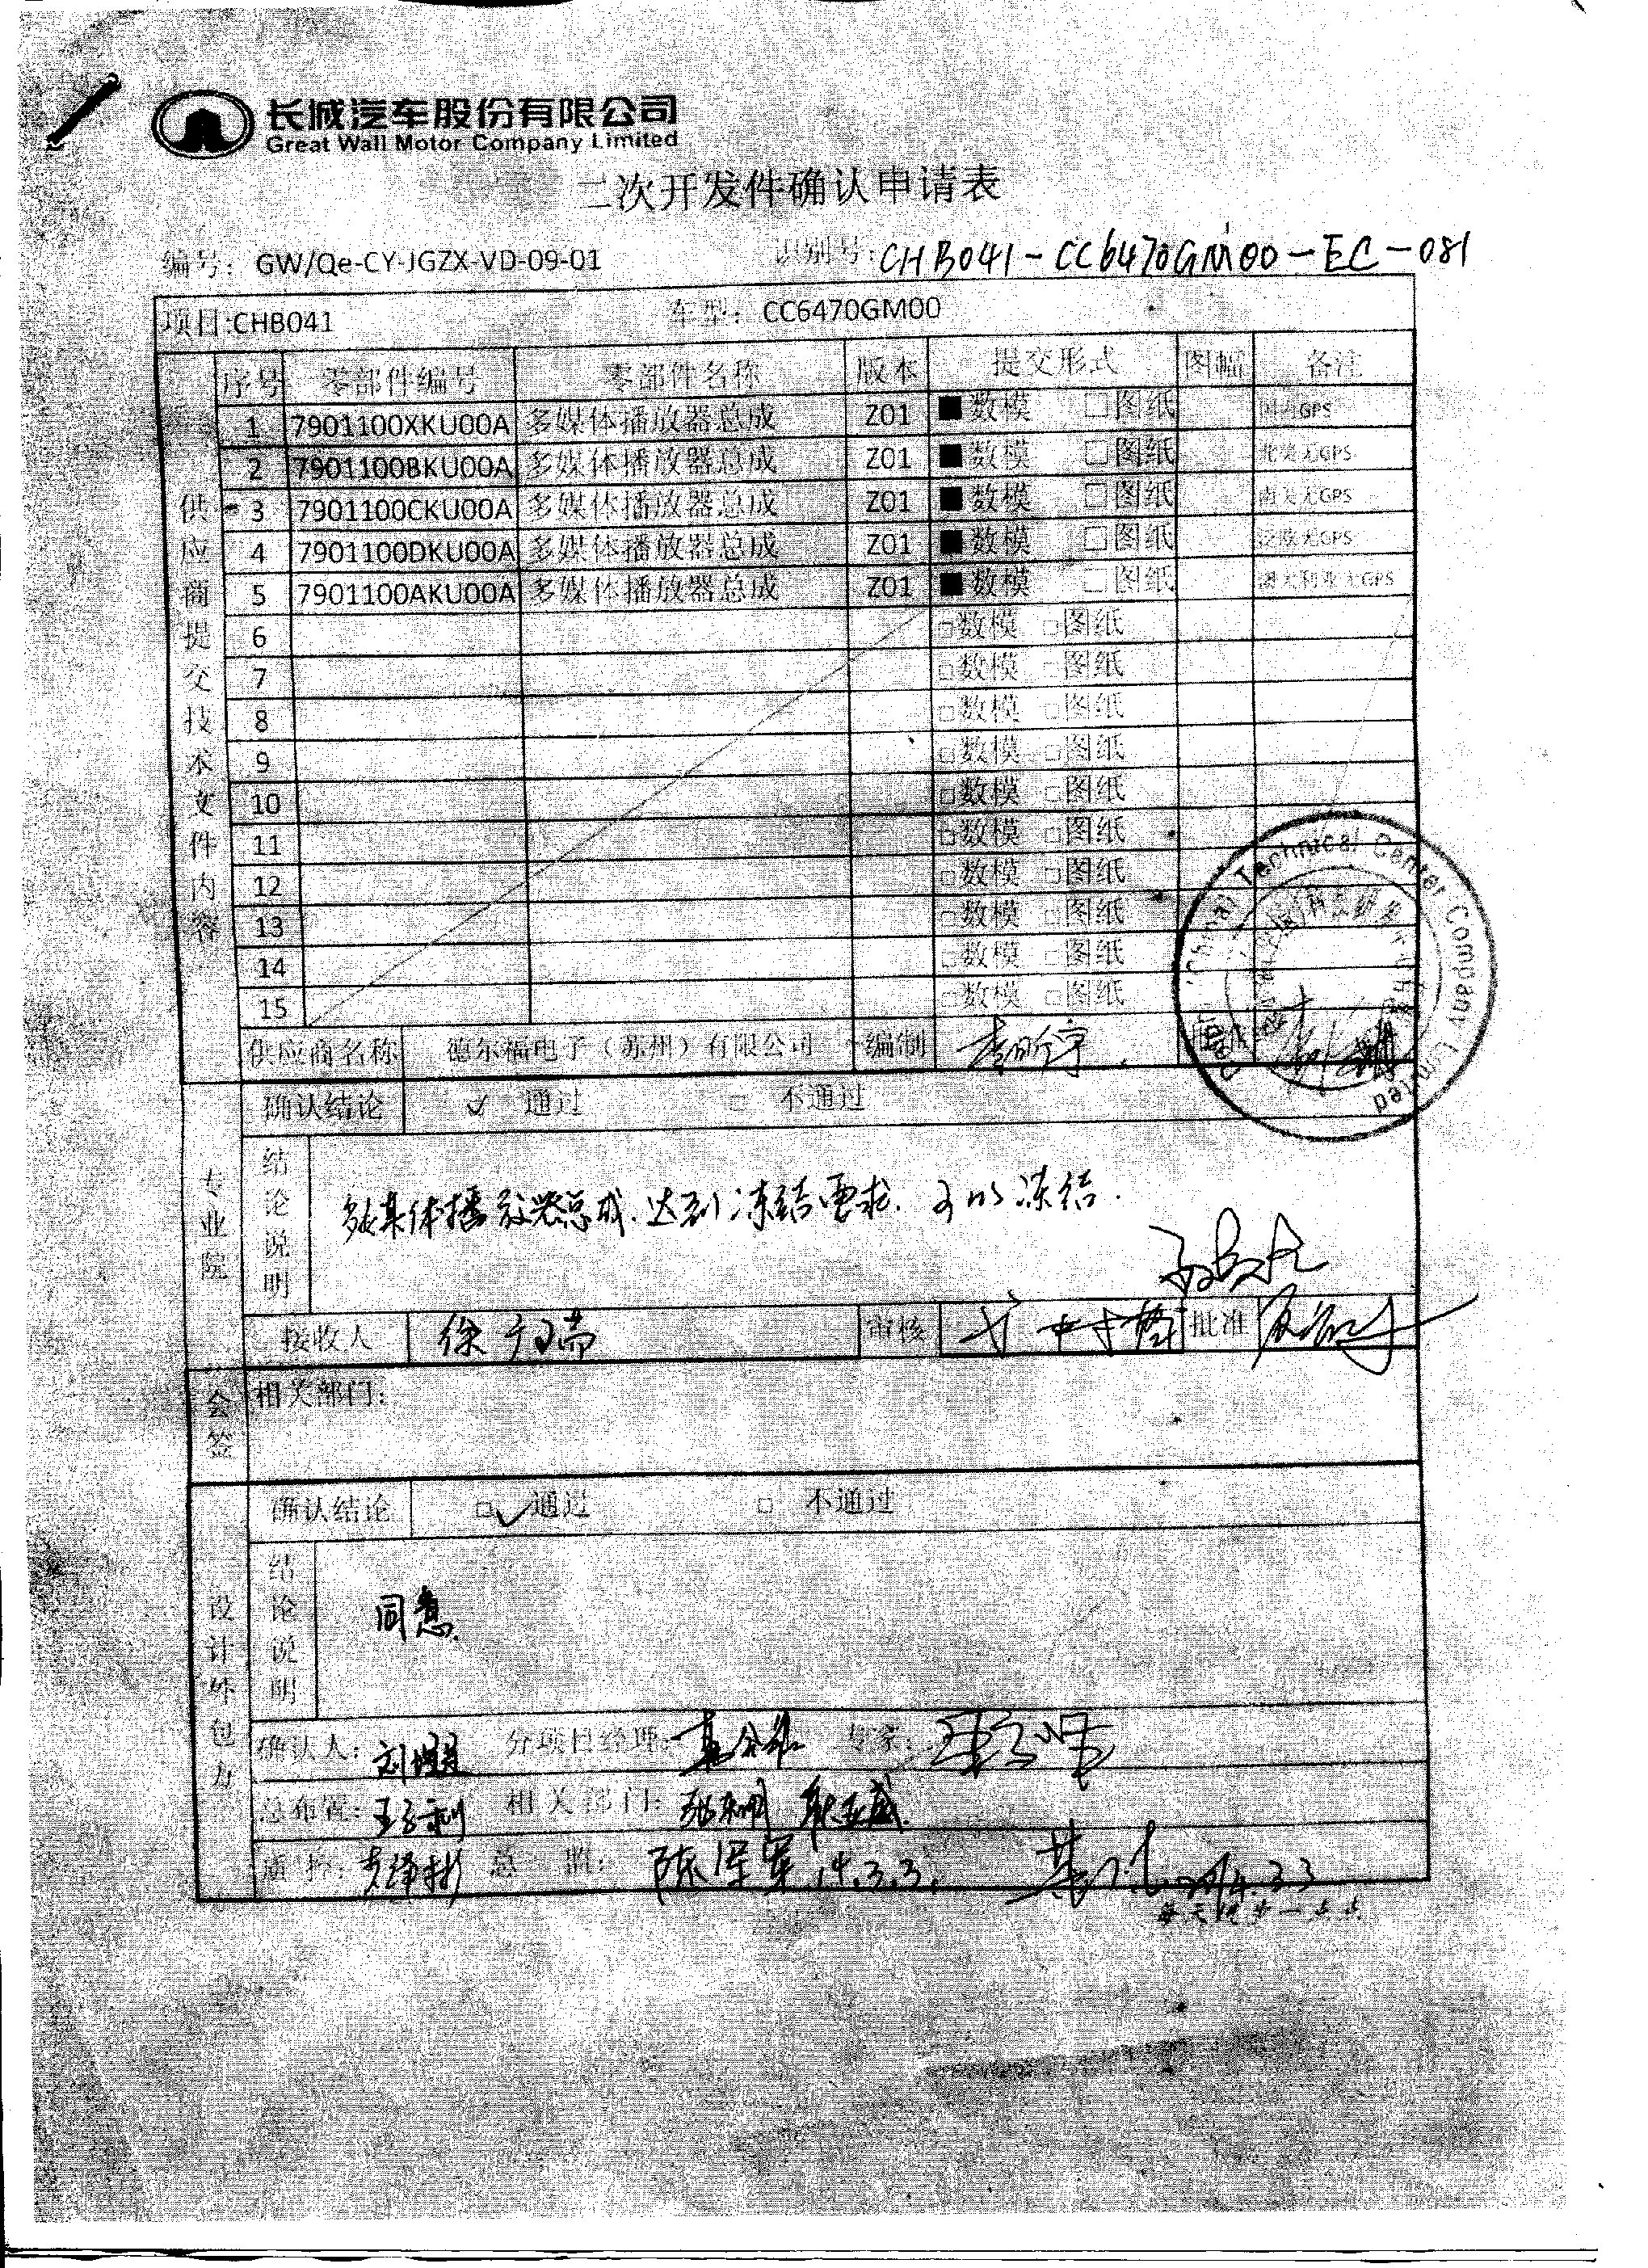 长城汽车股份有限公司
Great Wall Motor Company Limited
二次开发件确认申请表
编号：GW/Qe-CY-JGZX-VD-09-01 识别号：CHB041-CC6470GM00-EC-081
项目:CHB041 车型：CC6470GM00
供应商提交技术文件内容
序号 零部件编号 零部件名称 版本 提交形式 图幅 备注
1 7901100XKU00A 多媒体播放器总成 Z01 ■数模 □图纸 国内GPS
2 7901100BKU00A 多媒体播放器总成 Z01 ■数模 □图纸 北美无GPS
3 7901100CKU00A 多媒体播放器总成 Z01 ■数模 □图纸 南美无GPS
4 7901100DKU00A 多媒体播放器总成 Z01 ■数模 □图纸 泛欧无GPS
5 7901100AKU00A 多媒体播放器总成 Z01 ■数模 □图纸 澳大利亚无GPS
6 □数模 □图纸
7 □数模 □图纸
8 □数模 □图纸
9 □数模 □图纸
10 □数模 □图纸
11 □数模 □图纸
12 □数模 □图纸
13 □数模 □图纸
14 □数模 □图纸
15 □数模 □图纸
供应商名称 德尔福电子（苏州）有限公司 编制
(China) Technical Center Company Limited
专业院
确认结论 ✓ 通过 □ 不通过
结论说明
多媒体播放器总成.达到冻结要求.可以冻结.
接收人 审核 批准
会签
相关部门：
设计外包方
确认结论 □✓通过 □ 不通过
结论说明
同意.
确认人： 分项目经理： 专家：
总布置： 相关部门：
质控： 总监： 14.3.3. 2014.3.3
每天进步一点点